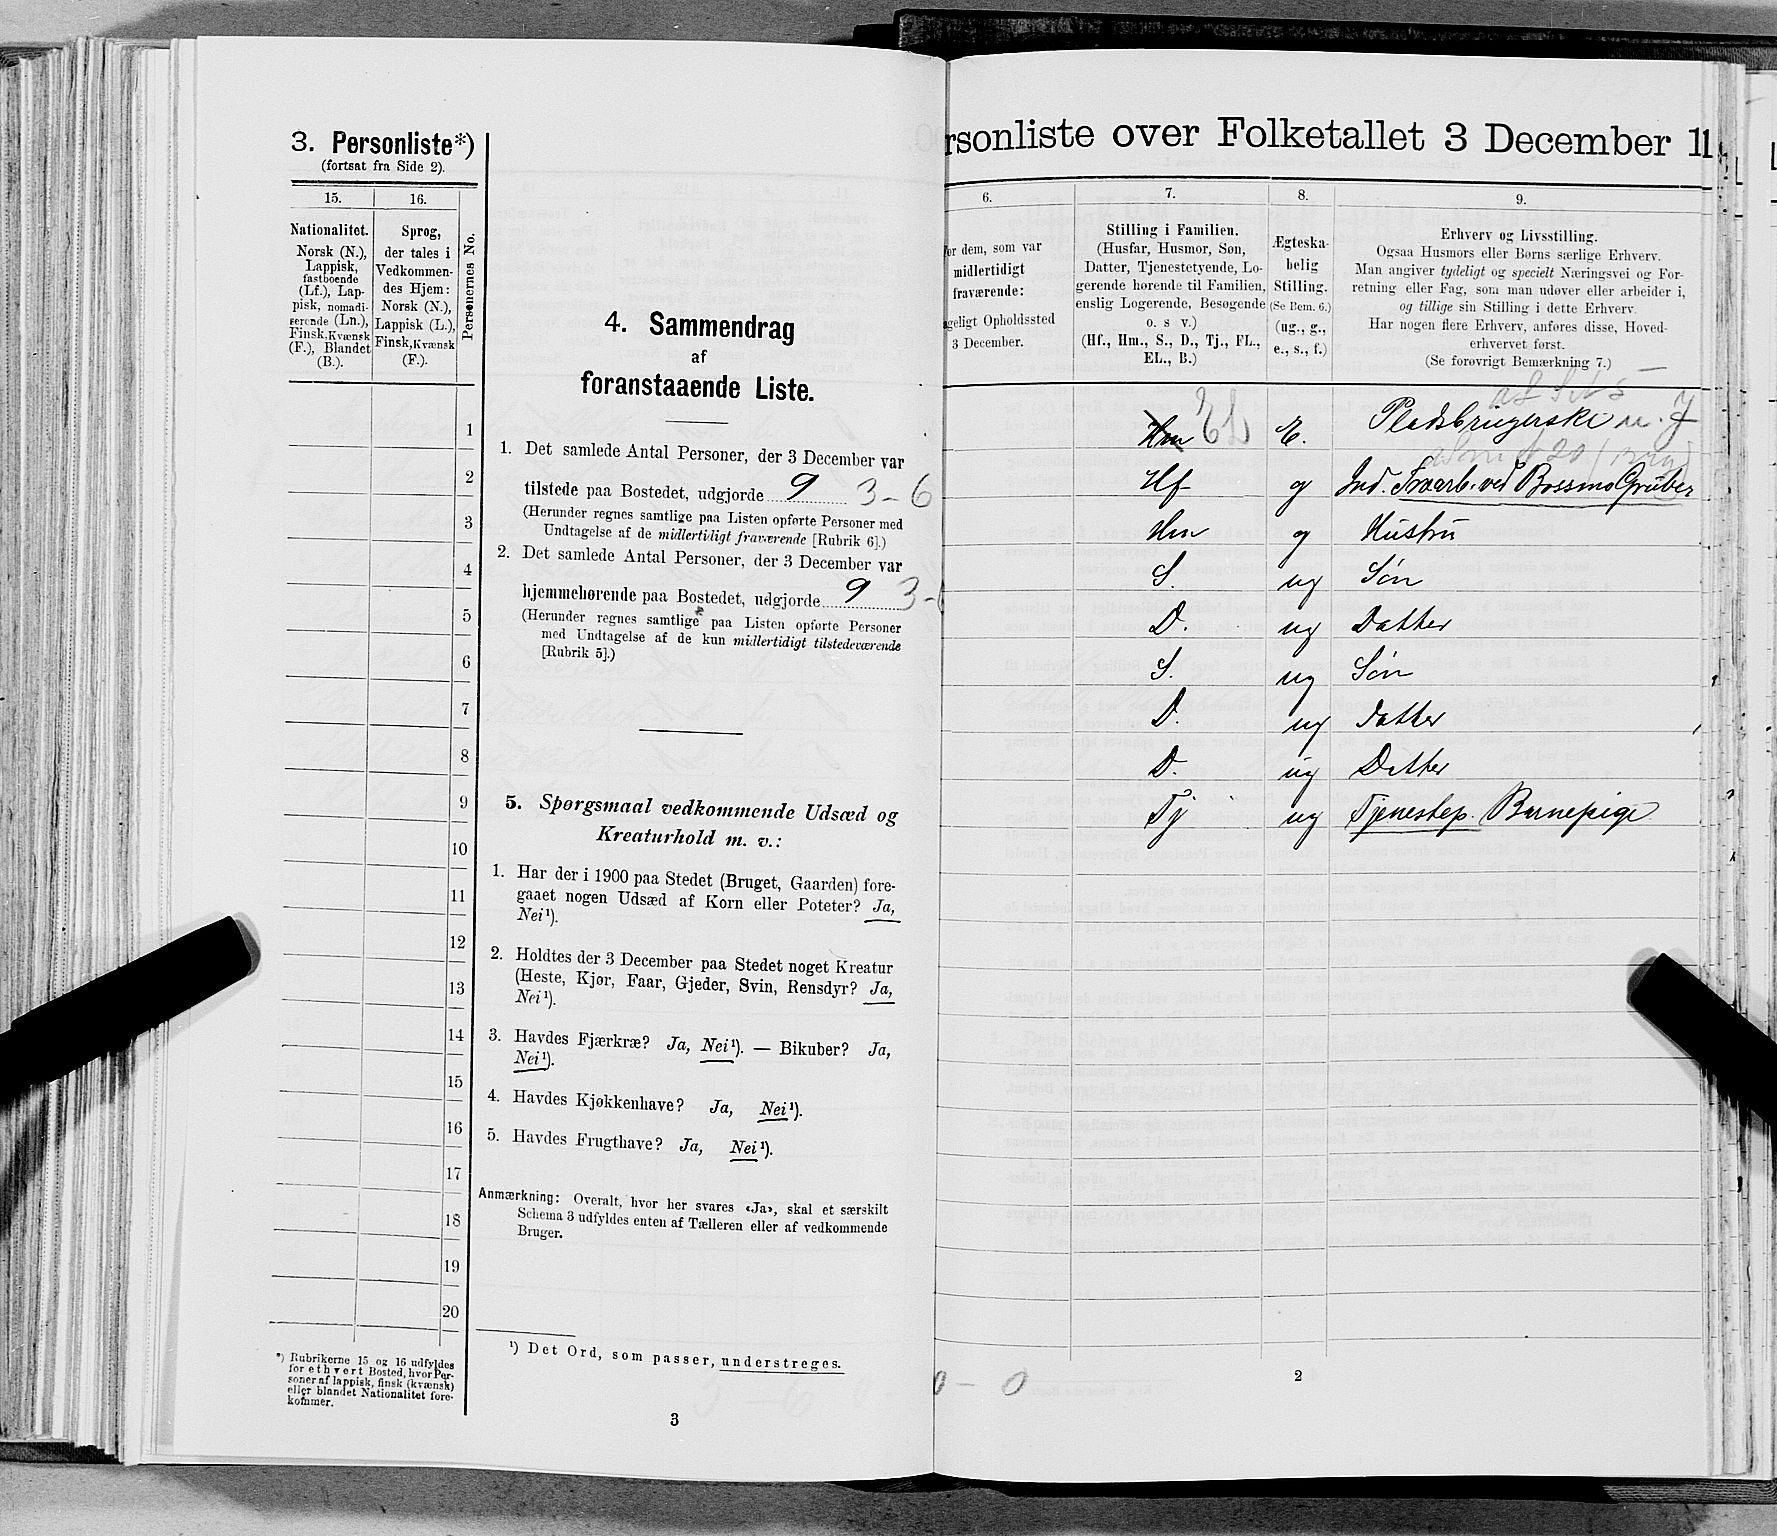 3. Personliste*)
(fortsat fra Side 2).
15.
16.
Personernes No.
Nationalitet.
Norsk (N.),
Lappisk,
fastboende
(Lf.), Lap-
pisk, nomadi-
serende (Ln.),
Finsk, Kvænsk
(F.), Blandet
(B.).
Sprog,
der tales i
Vedkommen-
des Hjem:
Norsk (N.),
Lappisk (L.),
Finsk, Kvænsk
(F.).
1
2
3
4
5
6
7
8
9
10
11
12
13
14
15
16
17
18
19
20
*) Rubrikerne 15 og 16 udfyldes
for ethvert Bosted, hvor Per-
soner af lappisk, finsk (kvænsk)
eller blandet Nationalitet fore-
kommer.
4. Sammendrag
af
foranstaaende Liste.
1. Det samlede Antal Personer, der 3 December var
tilstede paa Bostedet, udgjorde 9 3-6
(Herunder regnes samtlige paa Listen opførte Personer med
Undtagelse af de midlertidigt fraværende [Rubrik 6].)
2. Det samlede Antal Personer, der 3 December var
hjemmehørende paa Bostedet, udgjorde 9 3-
(Herunder regnes samtlige paa Listen opførte Personer
med Undtagelse af de kun midlertidigt tilstedeværende
[Rubrik 5].)
5. Spørgsmaal vedkommende Udsæd og
Kreaturhold m. v.:
1. Har der i 1900 paa Stedet (Bruget, Gaarden) fore-
gaaet nogen Udsæd af Korn eller Poteter? Ja,
Nei ¹).
2. Holdtes der 3 December paa Stedet noget Kreatur
(Heste, Kjør, Faar, Gjeder, Svin, Rensdyr? Ja,
Nei ¹).
3. Havdes Fjærkræ? Ja, Nei ¹). — Bikuber? Ja,
Nei ¹).
4. Havdes Kjøkkenhave? Ja, Nei ¹).
5. Havdes Frugthave? Ja, Nei ¹).
Anmærkning: Overalt, hvor her svares «Ja», skal et særskilt
Schema 3 udfyldes enten af Tælleren eller af vedkommende
Bruger.
¹) Det Ord, som passer, understreges.
3
rsonliste over Folketallet 3 December 1
6.
7.
8.
9.
for dem, som var
midlertidigt
fraværende:
geligt Opholdssted
3 December.
Stilling i Familien.
(Husfar, Husmor, Søn,
Datter, Tjenestetyende, Lo-
gerende hørende til Familien,
enslig Logerende, Besøgende
o. s v.)
(Hf., Hm., S., D., Tj., FL.,
EL., B.)
Ægteska-
belig
Stilling.
(Se Bem. 6.)
(ug., g.,
e., s., f.)
Erhverv og Livsstilling.
Ogsaa Husmors eller Børns særlige Erhverv.
Man angiver tydeligt og specielt Næringsvei og For-
retning eller Fag, som man udøver eller arbeider i,
og tillige sin Stilling i dette Erhverv.
Har nogen flere Erhverv, anføres disse, Hoved-
erhvervet først.
(Se forøvrigt Bemærkning 7.)
Hm EL E. Pladsbrugerske m. J
Hf g Ind. Gruarb. ved Bossmo Gruber
Hm g Hustru
S. ug Søn
D. ug Datter
S. ug Søn
D. ug Datter
D. ug Datter
Tj ug Tjenestep. Barnepige
0 - 0
2